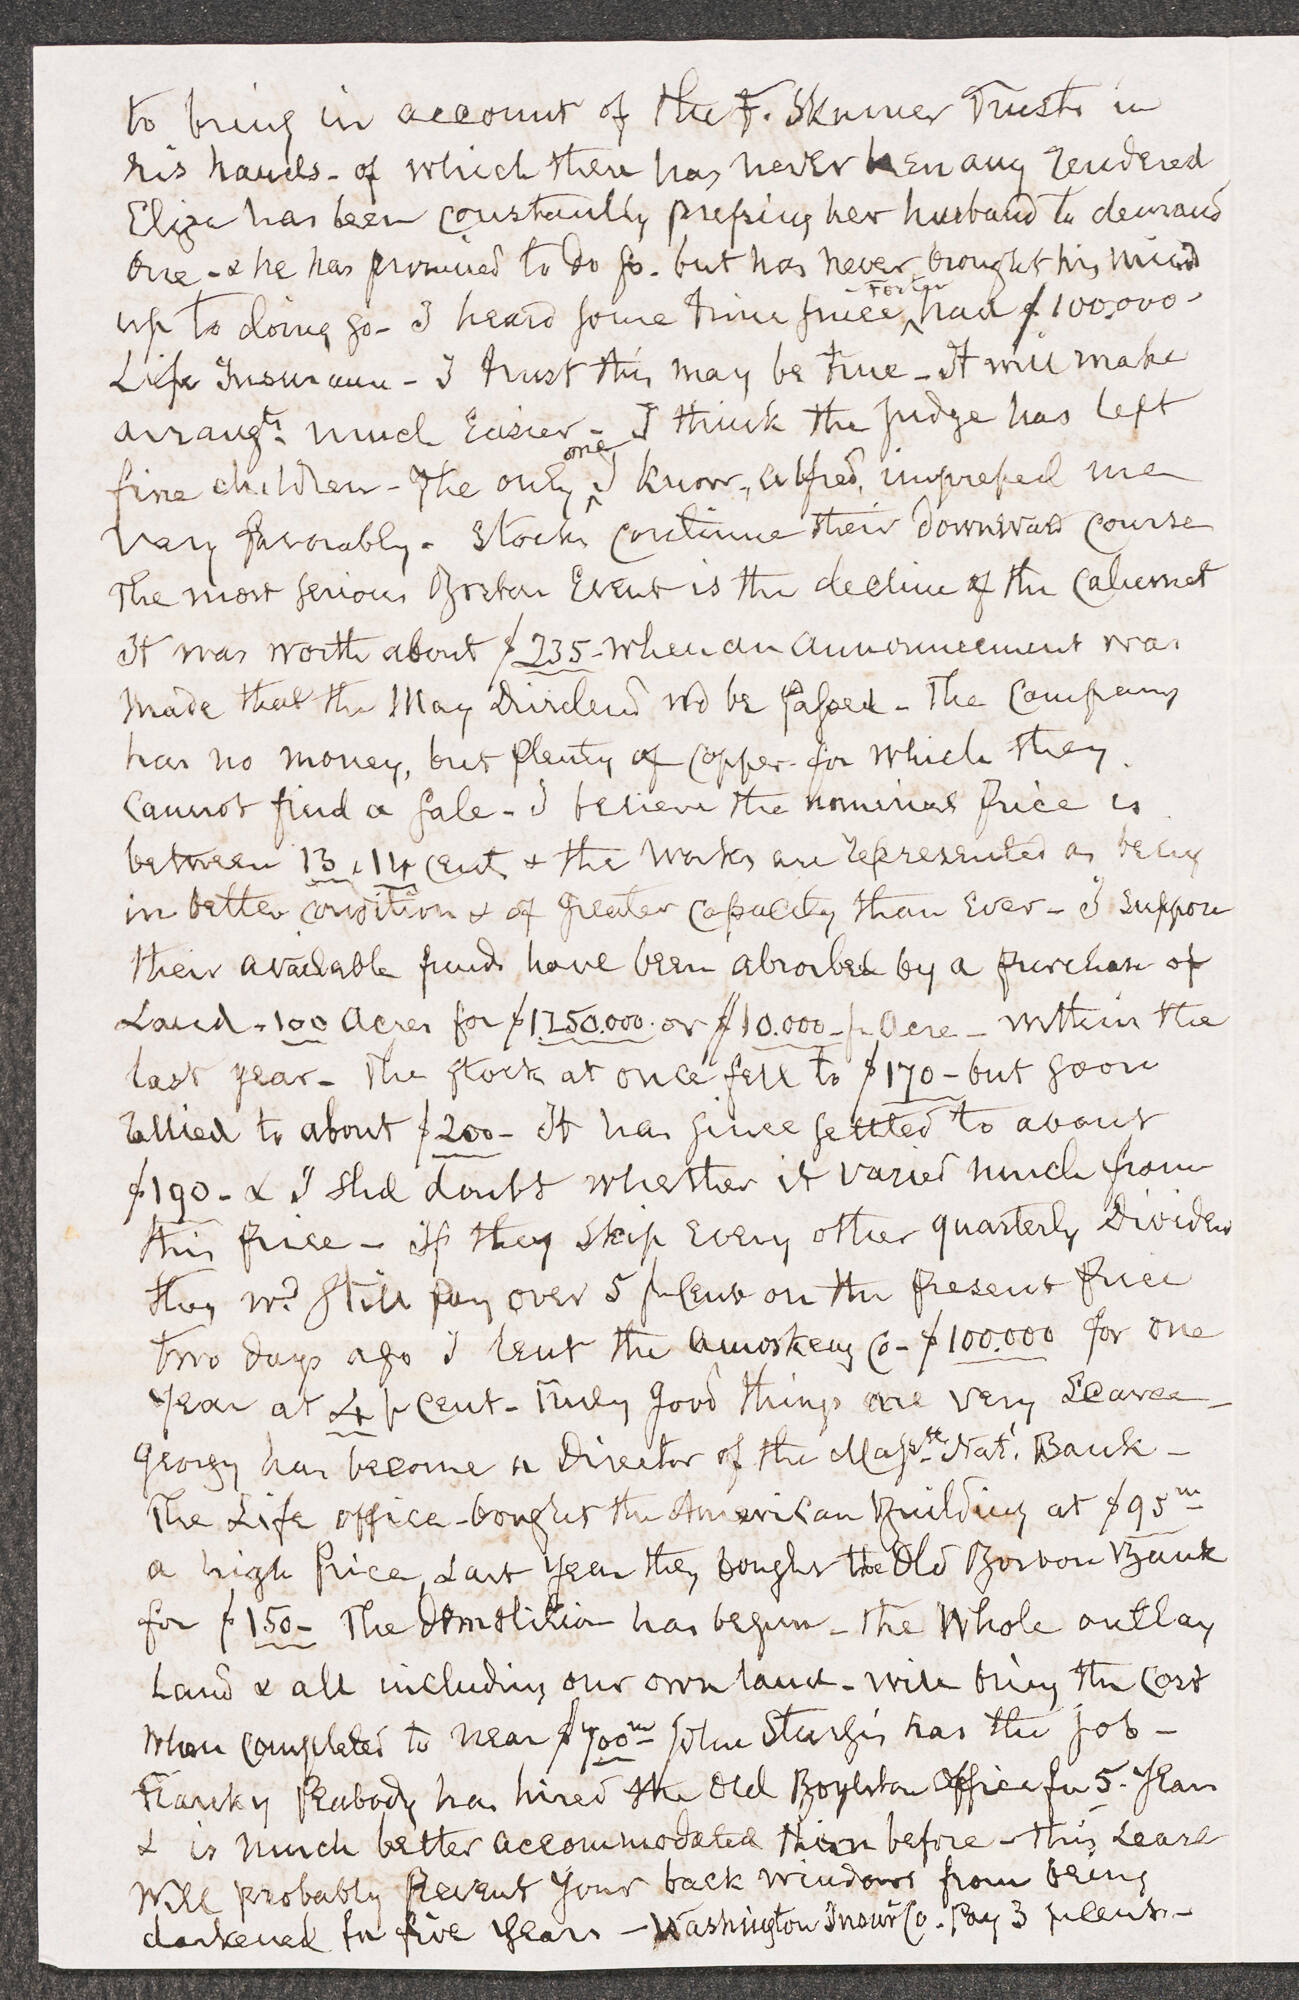 to bring in account of the F. Skinner Trusts in
his hands - of which there has never been any rendered
Eliza has been constantly pressing her husband to demand
one - & he has promised to do so - but has never brought his mind
up to doing so - I heard some time since Foster had $100.000 -
Life Insurance - I trust this may be true - It will make
arrangts. much easier - I think the Judge has left
fine children - The only one I know, Alfred, impressed me
very favorably - Stocks continue their downward course
The most serious Boston Event is the decline of the Calumet
It was worth about $235 - when an announcement was
made that the May Dividend wd be passed - The Company
has no money, but plenty of copper - for which they
cannot find a sale - I believe the nominal price is
between 13 & 14 cents & the works are represented as being
in better condition & of greater capacity than ever - I suppose
their available funds have been absorbed by a purchase of
Land - 100 Acres for $1250.000 - or $10.000 - pr Acre - within the
last year - The stock at once fell to $170 - but soon
rallied to about $200 - It has since settled to about
$190 - & I shd doubt whether it varied much from
this price - If they skip every other quarterly Dividend
they wd. still pay over 5 pr Cent on the present price
Two days ago I lent the Amoskeag Co - $100.000 for one
year at 4 pr Cent - Truly good things are very scarce -
Georgy has become a Director of the Masstts Natl. Bank -
The Life office - bought the American Building at $95m
a high price, Last year they bought the Old Boston Bank
for $150 - The demolition has begun - the whole outlay
Land & all including our own land - will bring the cost
when completed to near $700m - John Sturgis has the job -
Franky Peabody has hired the Old Boylston office for 5 - years
& is much better accommodated than before - this Lease
will probably prevent your back windows from being
darkened for five years - Washington Insur Co. Pay 3 pr cent -